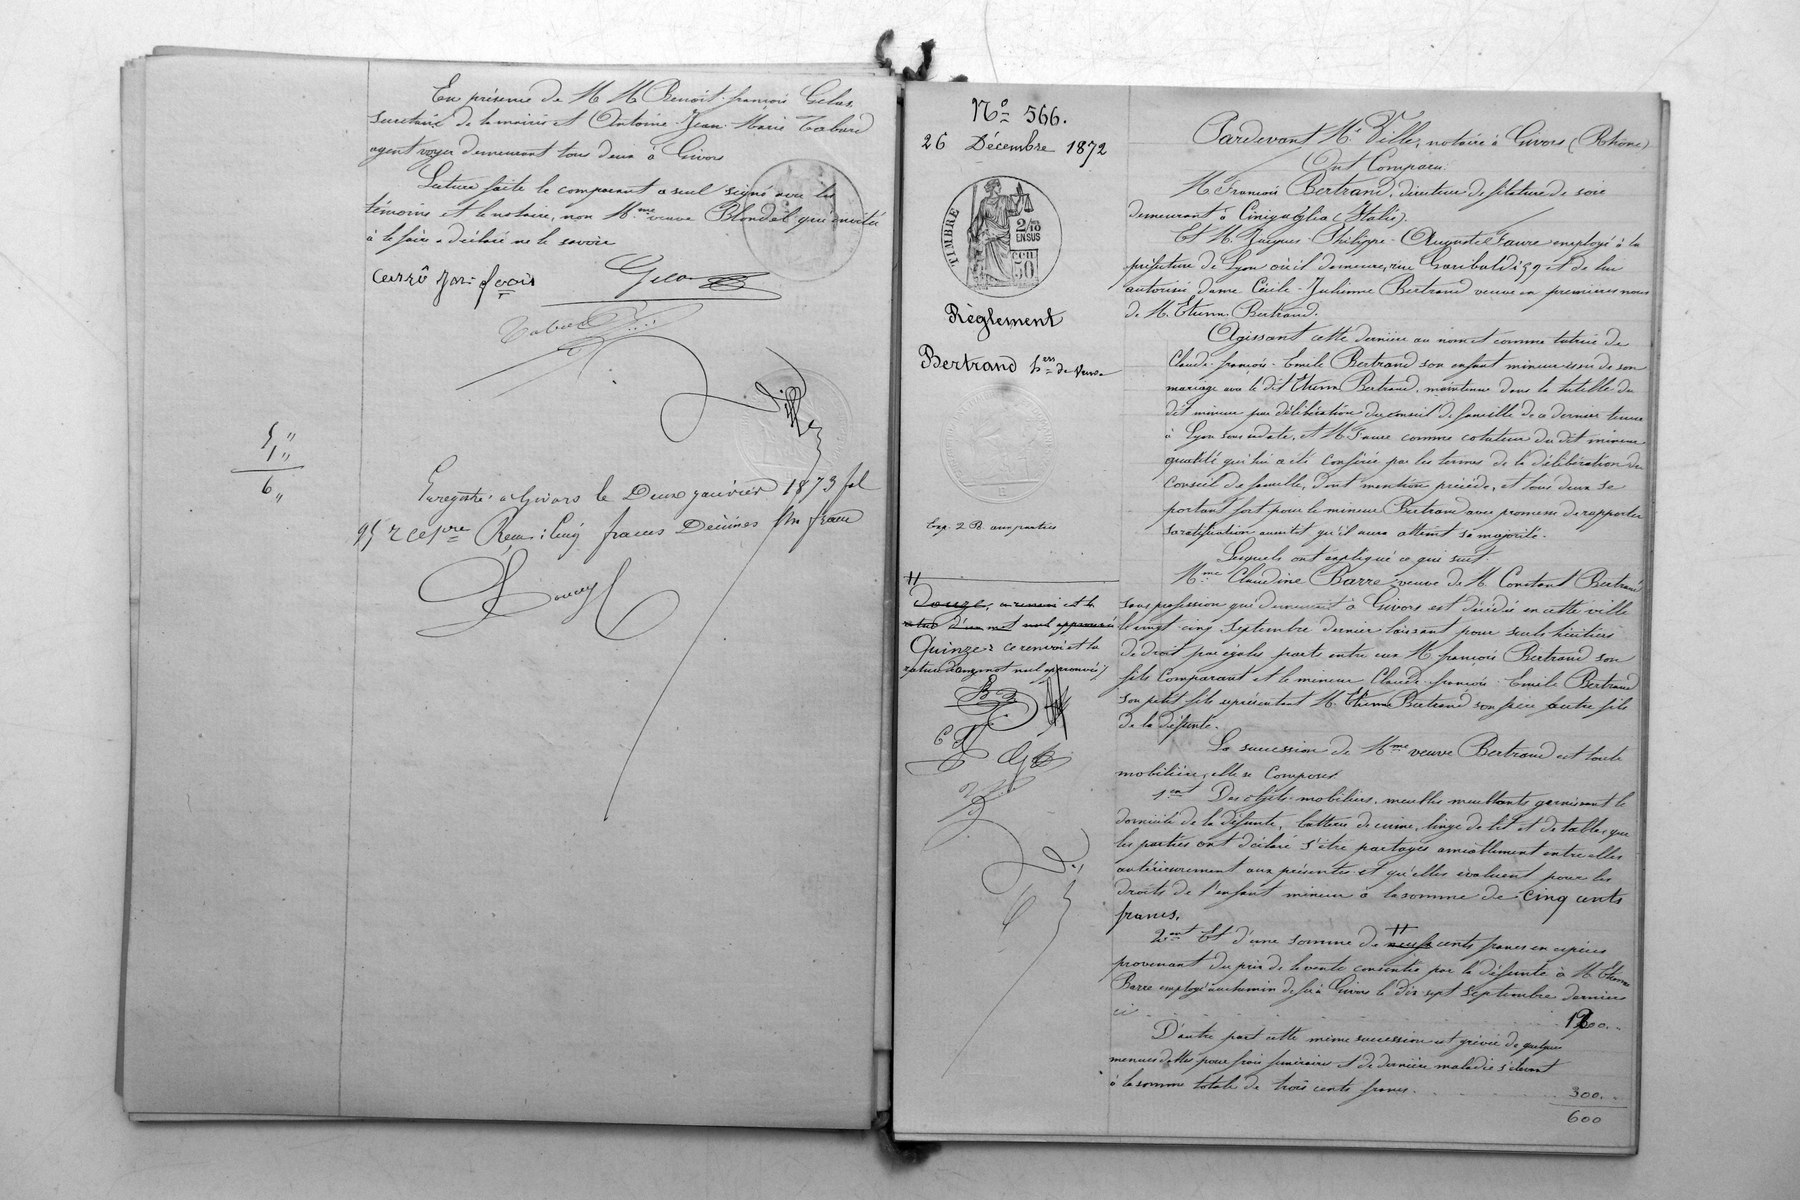 En présence de M M Benoit-françois Gelas,
secrétaire de la mairie et Antoine Jean Marie Tabard
agent voyer demeurant tous deux à Givors
Lecture faite le comparant a seul signé avec les
témoins et le notaire, non Mme veuve Blondel qui invitée
à le faire a déclaré ne le savoir
Gelas
Tabard
5 "
1, "
6 "
Enregistré à Givors le Deux janvier 1873 fol
95 Reçu: Cinq francs Décimes Un franc
No 566.
26 Décembre 1872
TIMBRE
2/10
EN SUS
50
Règlement
Bertrand
Exp. 2 R. aux parties
Douze, ce renvoi et la
rature d'un mot nul approuvés
Quinze: ce renvoi et la
rature d'un mot nul approuvés
Pardevant Me Ville, notaire à Givors (Rhône)
Ont Comparu
M. François Bertrand, directeur de filature de soie
demeurant à Cinigaglia (Italie).
Et M. Jacques-Philippe-Auguste Faure employé à la
préfecture de Lyon où il demeure, rue Garibaldi 59 et de lui
autorisée dame Cécile-Julienne Bertrand veuve en premières noces
de M. Etienne Bertrand.
Agissant cette dernière au nom et comme tutrice de
Claude-françois-Emile Bertrand son enfant mineur issu de son
mariage avec le dit Etienne Bertrand, maintenue dans la tutelle du
dit mineur par délibération du conseil de famille de ce dernier tenue
à Lyon sous sa date, et M. Faure comme cotuteur du dit mineur
qualité qui lui a été conférée par les termes de la délibération du
Conseil de famille, dont mention précède, et tous deux se
portant fort pour le mineur Bertrand avec promesse de rapporter
sa ratification aussitôt qu'il aura atteint sa majorité.
Lesquels ont expliqué ce qui suit
Mme Claudine Barre veuve de M. Constant Bertrand
sans profession qui demeurait à Givors est décédée en cette ville
le vingt-cinq septembre dernier laissant pour seuls héritiers
de droit par égales parts entre eux M. françois Bertrand son
fils Comparant et le mineur Claude-françois-Emile Bertrand
son petit fils représentant M. Etienne Bertrand son père autre fils
de la défunte.
La succession de Mme veuve Bertrand est toute
mobilière, elle se Compose:
1ent Des objets mobiliers, meubles meublants garnissant le
domicile de la défunte, batterie de cuisine, linge de lit et de table, que
les parties ont déclaré s'être partagés amiablement entre elles
antérieurement aux présentes et qu'elles évaluent pour les
droits de l'enfant mineur à la somme de cinq cents
francs.
2ent Et d'une somme de neuf cents francs en espèces
provenant du prix de la vente consentie par la défunte à M. Etienne
Barre employé au chemin de fer à Givors le dix-sept septembre dernier
ci
D'autre part cette même succession est grévée de quelques
menues dettes pour frais funéraires et de dernière maladie s'élevant
à la somme totale de trois cents francs. 300.
600